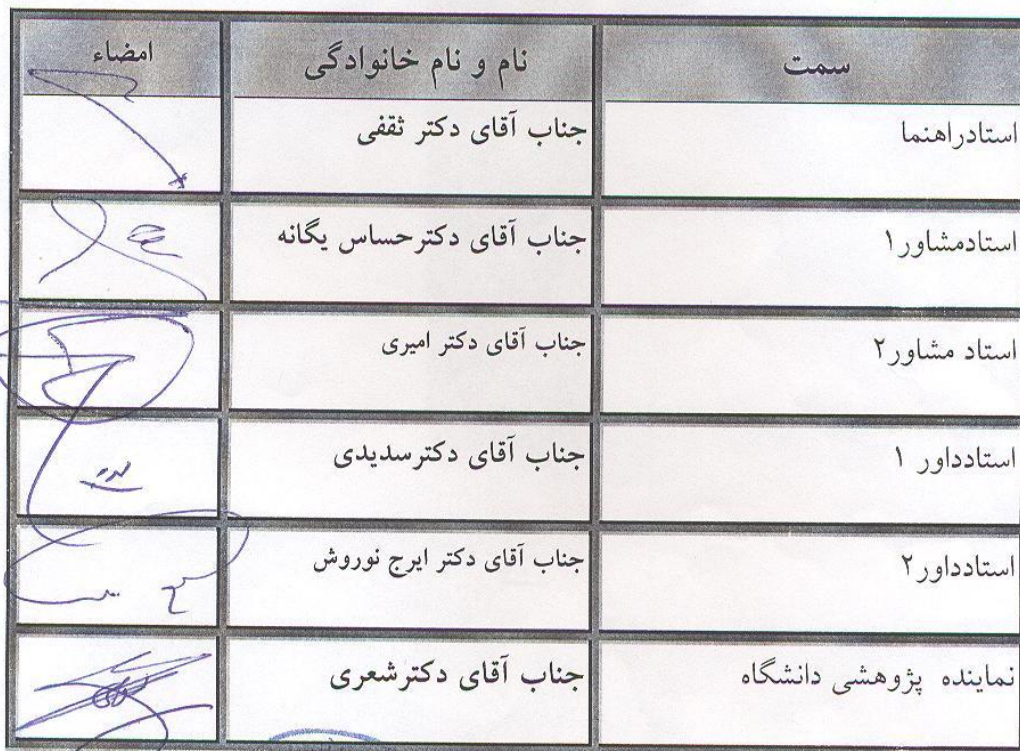 سمت نام و نام خانوادگی امضاء
استادراهنما جناب آقای دکتر ثقفی
استادمشاور۱ جناب آقای دکترحساس یگانه
استاد مشاور۲ جناب آقای دکتر امیری
استادداور ۱ جناب آقای دکترسدیدی
استادداور۲ جناب آقای دکتر ایرج نوروش
نماینده پژوهشی دانشگاه جناب آقای دکترشعری